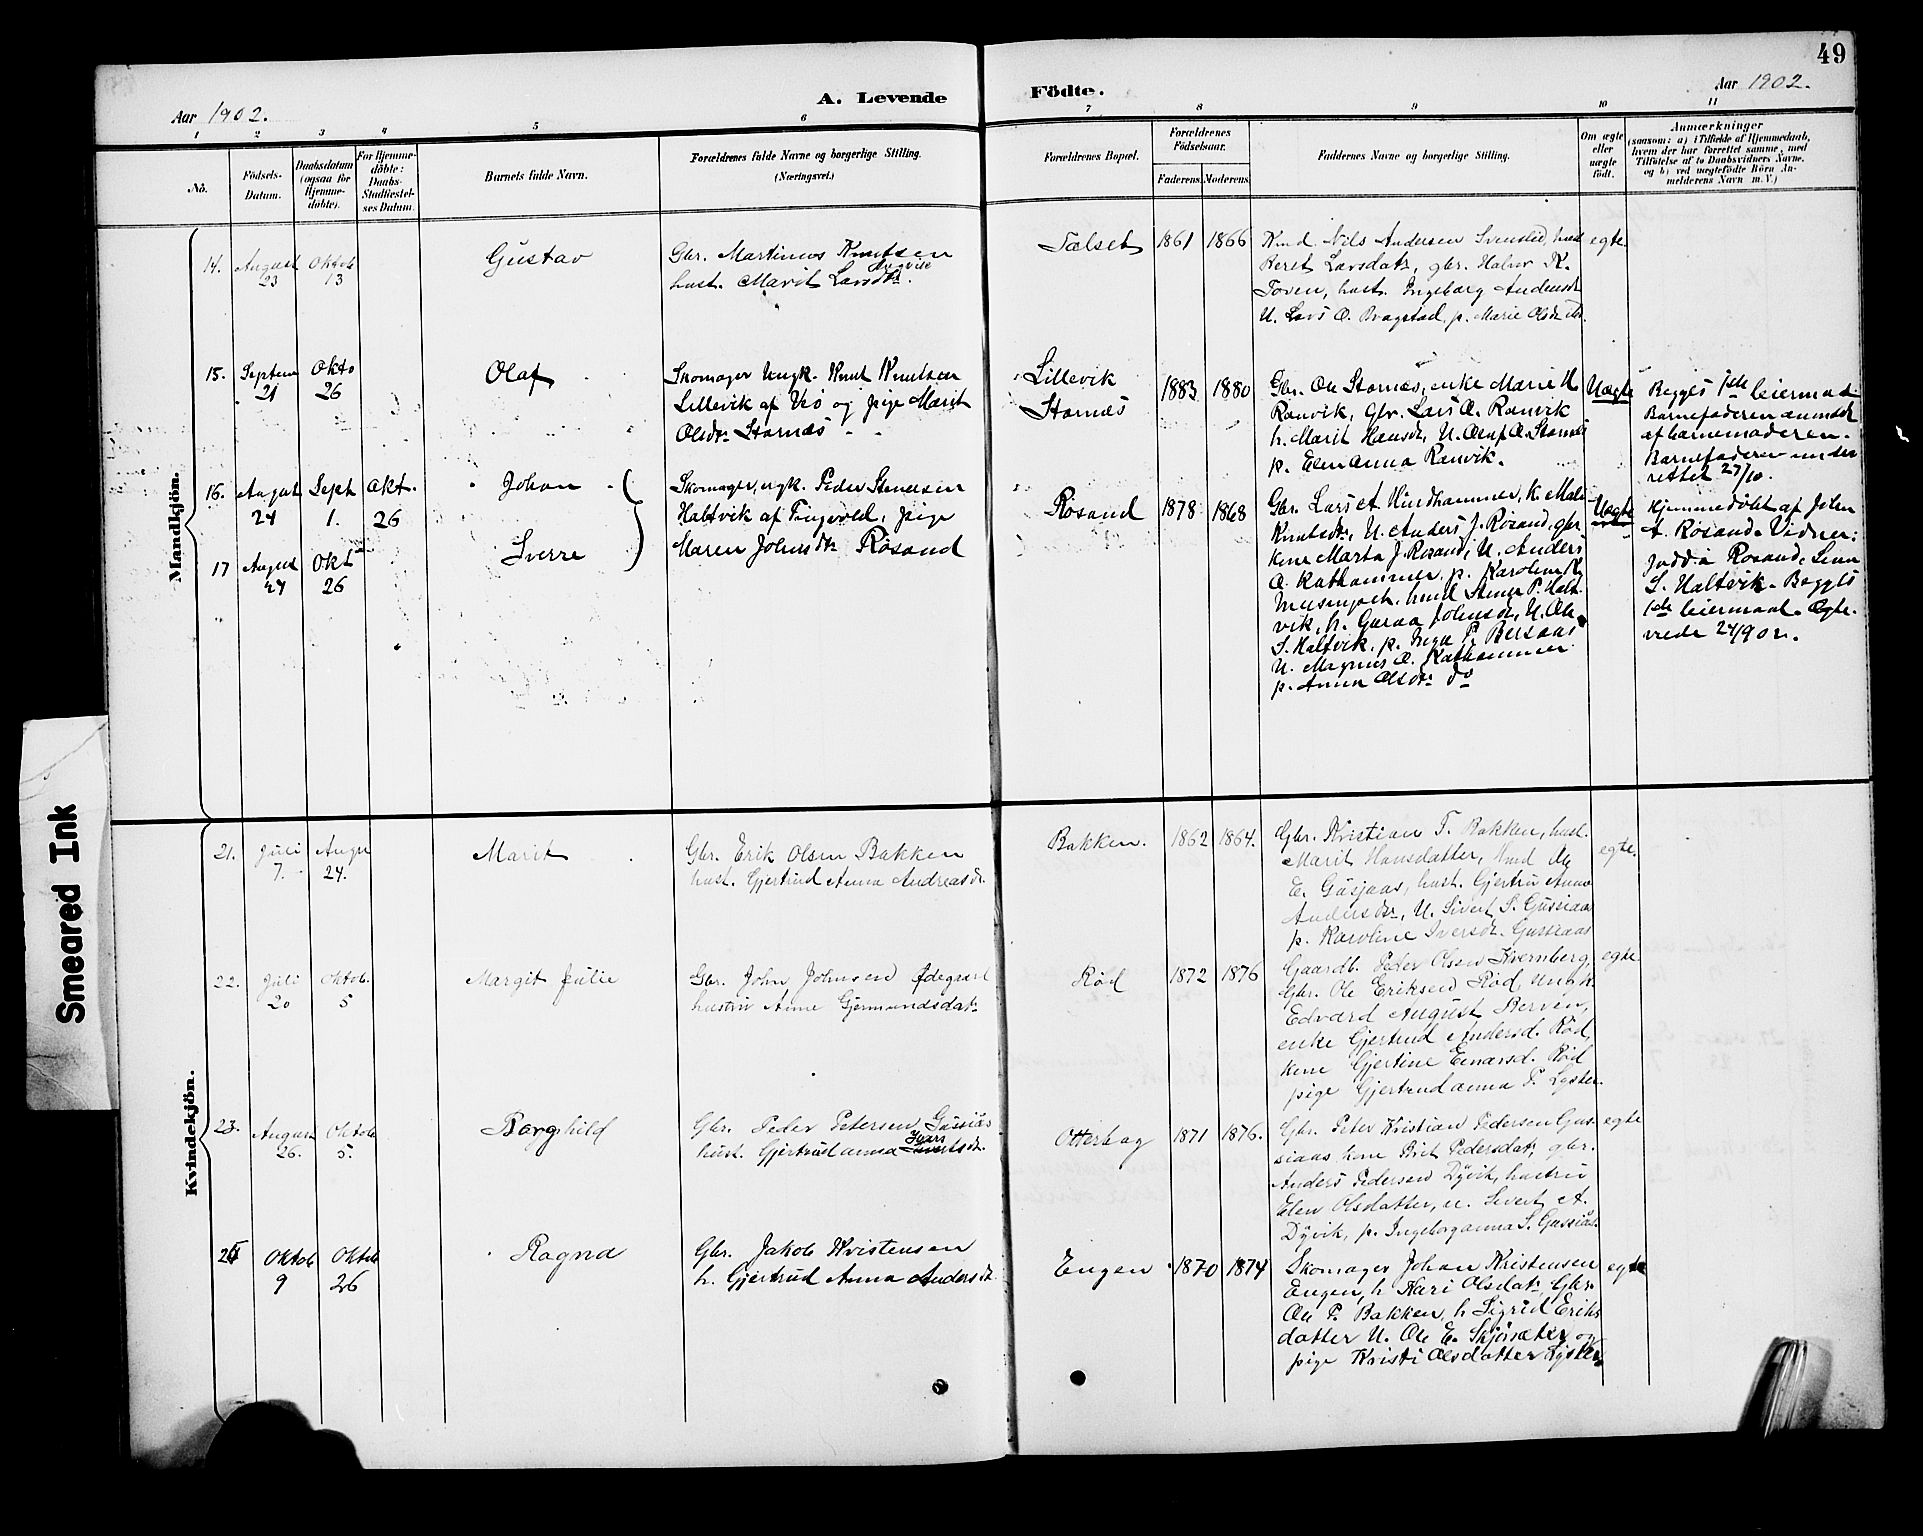 49
Aar 1902.
A. Levende
Födte.
Aar 1902.
1 2 3 4 5 6 7 8 9 10 11
No.
Födsels-
Datum.
Daabsdatum
(ogsaa for
Hjemme-
döbte).
For Hjemme-
döbte:
Daabs-
Stadfæstel-
ses Datum.
Barnets fulde Navn.
Forældrenes fulde Navne og borgerlige Stilling.
(Næringsvei.)
Forældrenes Bopæl.
Forældrenes
Födselsaar.
Faderens.
Moderens.
Faddernes Navne og borgerlige Stilling.
Om ægte
eller
uægte
födt.
Anmærkninger
(saasom: a) i Tilfælde af Hjemmedaab,
hvem der har forrettet samme, med
Tilföielse af to Daabsvidners Navne,
og b) ved uægtefödte Börn An-
melderens Navn m. V.)
Mandkjön.
14. August
23
Oktob
13
Gustav
Gbr. Martinus Knutsen
hust. Marit Larsdtr.
Tælset
1861 1866
Kmd. Nils Andersen Svensli, hust
Beret Larsdatr, gbr. Halvor K.
Toven, hust. Ingeborg Andersdr
U. Lars O. Bragstad, p. Marie Olsdr
egte.
15. Septem
21
Okto
26
Olaf
Skomager Ungk. Knut Knutsen
Lillevik af Veö og pige Marit
Olsdr. Stornæs
Lillevik
Stornæs
1883 1880
Gbr. Ole Stornæs, enke Marie H.
Ranvik, Gbr. Lars O. Ranvik
h. Marit Hansdr, U. Oluf O. Stornæs
p. Elen Anna Ranvik.
Uægte
Begges 1ste leiermaal
Barnefaderen anmeldt
af barnemoderen.
Barnefaderen under
rettet 27/10.
16. August
24
Sept
1.
Okt.
26
Johan
17 August
24
Okt
26
Sverre
Skomager, ugk. Peder Stenersen
Haltvik af Tingvold, pige
Maren Johnsdtr Røsand
Røsand
1878 1868
Gbr. Lars A. Hindhammer, k. Mali
Knutsdr., U. Anders J. Røsand, gbr
kone Marta J. Røsand, U. Anders
O. Kathammer, p. Karoline K.
kmd Stener P. Halt-
vik, h. Guraa Johnsdr, U. Ole
S. Haltvik, p. Inga P. Bersaas
U. Magnus O. Kathammer
p. Anna Olsdr. do
Uægte
Hjemmedøbt af John
A. Røsand. Vidner:
Røsand,
S. Haltvik. Begges
1ste leiermaal. Egte-
viede 24/9 02.
Kvindekjön.
21. Juli
7.
Augu
24.
Marit
Gbr. Erik Olsen Bakken
hust. Gjertrud Anna Andreasdr.
Bakken.
1862 1864.
Gbr. Kristian T. Bakken, hust.
Marit Hansdatter, Kmd
E. Gusjaas, hust. Gjertru Anna
Andersdr., U. Sivert S. Gussiaas
p. Karoline Iversdr. Gussiaas
egte.
22. Juli
20
Oktob.
5
Margit Julie
Gbr. John Johnsen Ødegaard
hustru Anne Gjermundsdatr
Rød
1872 1876
Gaardb. Peter Olsen Kvernberg,
Gbr. Ole Eriksen Rød, ungk.
Edvard August Berven,
enke Gjertrud Andersd. Rød,
kone Gjertine Einarsd. Rød
pige Gjertrud anna P. Lyster.
egte
23. August
26.
Oktob
5.
Borghild
Gbr. Peder Petersen Gussiås
hust. Gjertrud anna Ivarsdr.
Otterhag
1871 1876.
Gbr. Peter Kristian Pedersen Gus-
siaas, kone Brit Pedersdat, gbr.
Anders Pedersen Dyvik, hustru
Elen Olsdatter, u. Sivert A.
Dyvik, p. Ingeborganna S. Gussiås
egte
24 Oktob
9
Oktob
26
Ragna
Gbr. Jakob Kristensen
h. Gjertrud Anna Andersdr.
Engen
1870 1874
Skomager Johan Kristensen
Engen, h Kari Olsdatr, Gbr.
Ole P. Bakken, h Sigrid Eriks
datter U. Ole E. Skjørsæter og
pige Kristi Olsdatter Lyster
egte
Smeared Ink